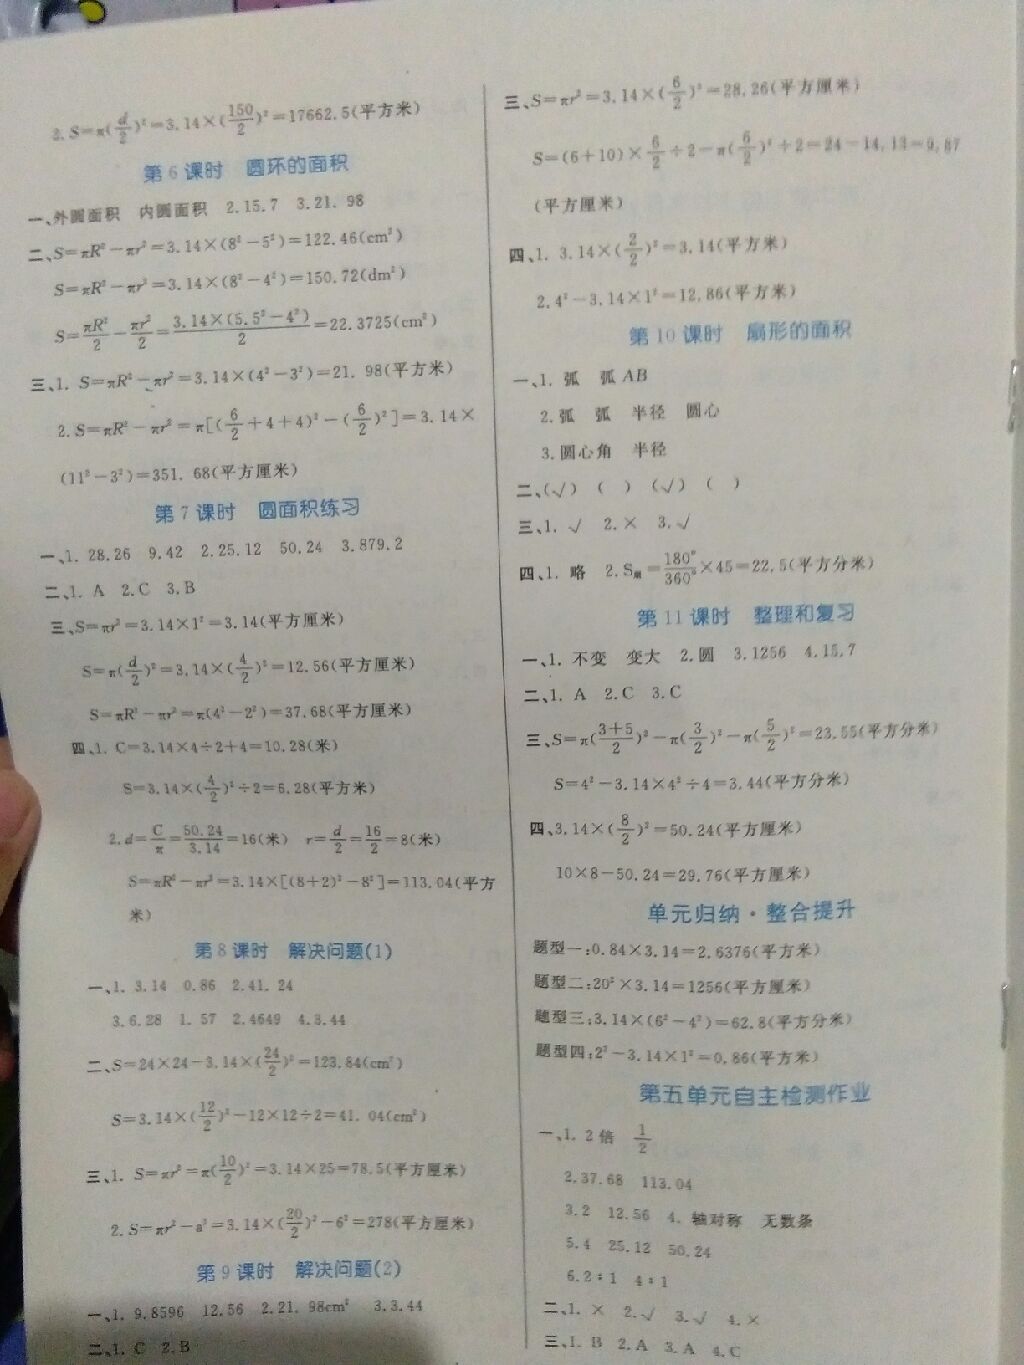 2.S=π(d/2)²=3.14×(150/2)²=17662.5(平方米)
第6课时 圆环的面积
一、外圆面积 内圆面积 2.15.7 3.21.98
二、S=πR²-πr²=3.14×(8²-5²)=122.46(cm²)
S=πR²-πr²=3.14×(8²-4²)=150.72(dm²)
S=πR²/2-πr²/2=3.14×(5.5²-4²)/2=22.3725(cm²)
三、1. S=πR²-πr²=3.14×(4²-3²)=21.98(平方米)
2.S=πR²-πr²=π[(6/2+4+4)²-(6/2)²]=3.14×
(11²-3²)=351.68(平方厘米)
第7课时 圆面积练习
一、1. 28.26 9.42 2.25.12 50.24 3.879.2
二、1. A 2.C 3.B
三、S=πr²=3.14×1²=3.14(平方厘米)
S=π(d/2)²=3.14×(4/2)²=12.56(平方厘米)
S=πR²-πr²=π(4²-2²)=37.68(平方厘米)
四、1. C=3.14×4÷2+4=10.28(米)
S=3.14×(4/2)²÷2=6.28(平方米)
2.d=C/π=50.24/3.14=16(米) r=d/2=16/2=8(米)
S=πR²-πr²=3.14×[(8+2)²-8²]=113.04(平方
米)
第8课时 解决问题(1)
一、1. 3.14 0.86 2.41.24
3.6.28 1.57 2.4649 4.3.44
二、S=24×24-3.14×(24/2)²=123.84(cm²)
S=3.14×(12/2)²-12×12÷2=41.04(cm²)
三、1. S=πr²=π(10/2)²=3.14×25=78.5(平方厘米)
2.S=πr²-a²=3.14×(20/2)²-6²=278(平方厘米)
第9课时 解决问题(2)
一、1. 9.8596 12.56 2.21.98cm² 3.3.44
二、1. C 2.B
三、S=πr²=3.14×(6/2)²=28.26(平方厘米)
S=(6+10)×6/2÷2-π(6/2)²÷2=24-14.13=9.87
(平方厘米)
四、1. 3.14×(2/2)²=3.14(平方米)
2.4²-3.14×1²=12.86(平方米)
第10课时 扇形的面积
一、1. 弧 弧AB
2.弧 弧 半径 圆心
3.圆心角 半径
二、(√) ( ) (√) ( )
三、1. √ 2.× 3.√
四、1. 略 2.S扇=180°/360°×45=22.5(平方分米)
第11课时 整理和复习
一、1. 不变 变大 2.圆 3.1256 4.15.7
二、1. A 2.C 3.C
三、S=π(3+5/2)²-π(3/2)²-π(5/2)²=23.55(平方分米)
S=4²-3.14×4²÷4=3.44(平方分米)
四、3.14×(8/2)²=50.24(平方厘米)
10×8-50.24=29.76(平方厘米)
单元归纳·整合提升
题型一:0.84×3.14=2.6376(平方米)
题型二:20²×3.14=1256(平方厘米)
题型三:3.14×(6²-4²)=62.8(平方分米)
题型四:2²-3.14×1²=0.86(平方米)
第五单元自主检测作业
一、1. 2倍 1/2
2.37.68 113.04
3.2 12.56 4. 轴对称 无数条
5.4 25.12 50.24
6.2∶1 4∶1
二、1. × 2.√ 3.√ 4.×
三、1. B 2.A 3.A 4.C